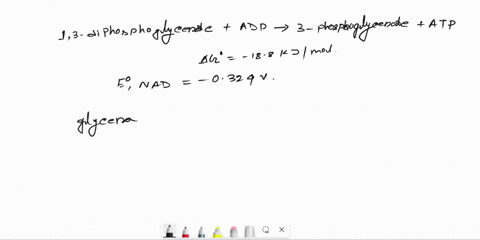 1,3-diphosphoglycerate + ADP → 3-phosphoglycerate + ATP
ΔG° = -18.8 KJ/mol.
E°, NAD = -0.324 v.
glycera